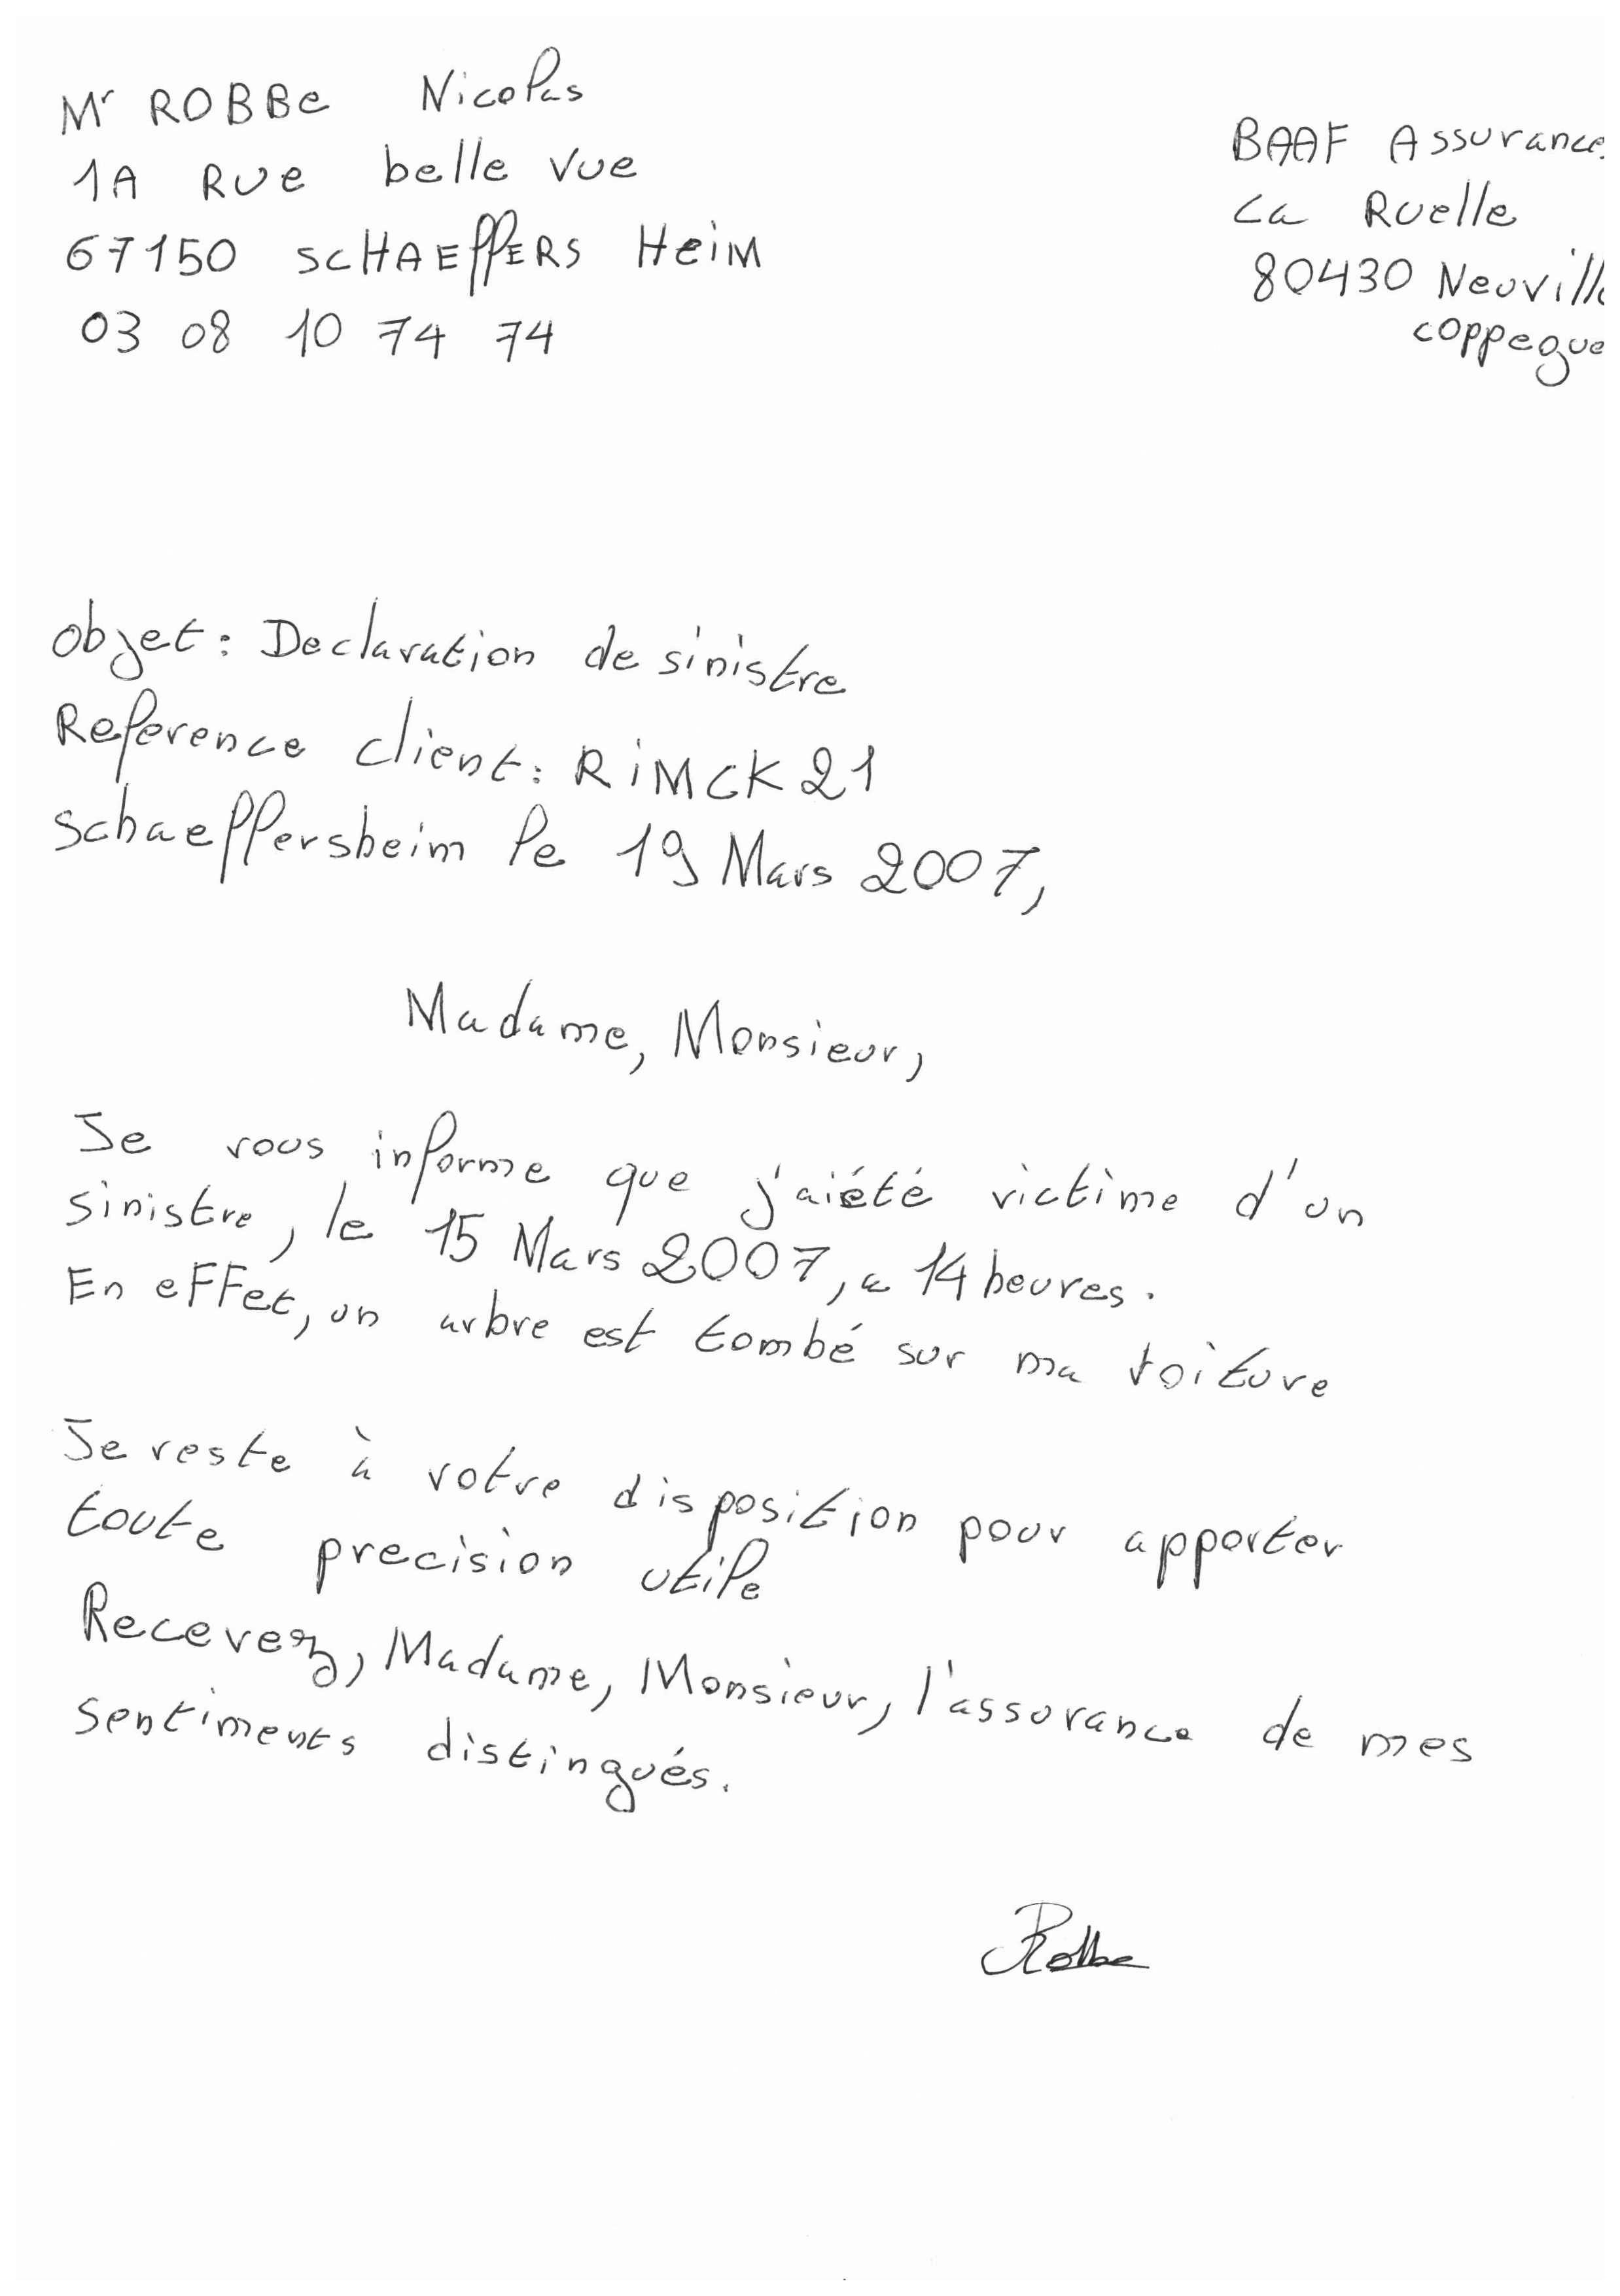 Mr ROBBe Nicolas
1A Rue belle vue
67150 scHAEffERS HeiM
03 08 10 74 74
BAAF Assurance
La Ruelle
80430 Neuville
coppegue
objet : Declaration de sinistre
Reference client : RiMCK21
Schaeffersheim le 19 Mars 2007,
Madame, Monsieur,
Je vous informe que j'ai été victime d'un
sinistre, le 15 Mars 2007, a 14 heures.
En eFFet, un arbre est tombé sur ma toiture
Je reste à votre disposition pour apporter
toute precision utile
Recevez, Madame, Monsieur, l'assurance de mes
sentiments distingués.
Robbe